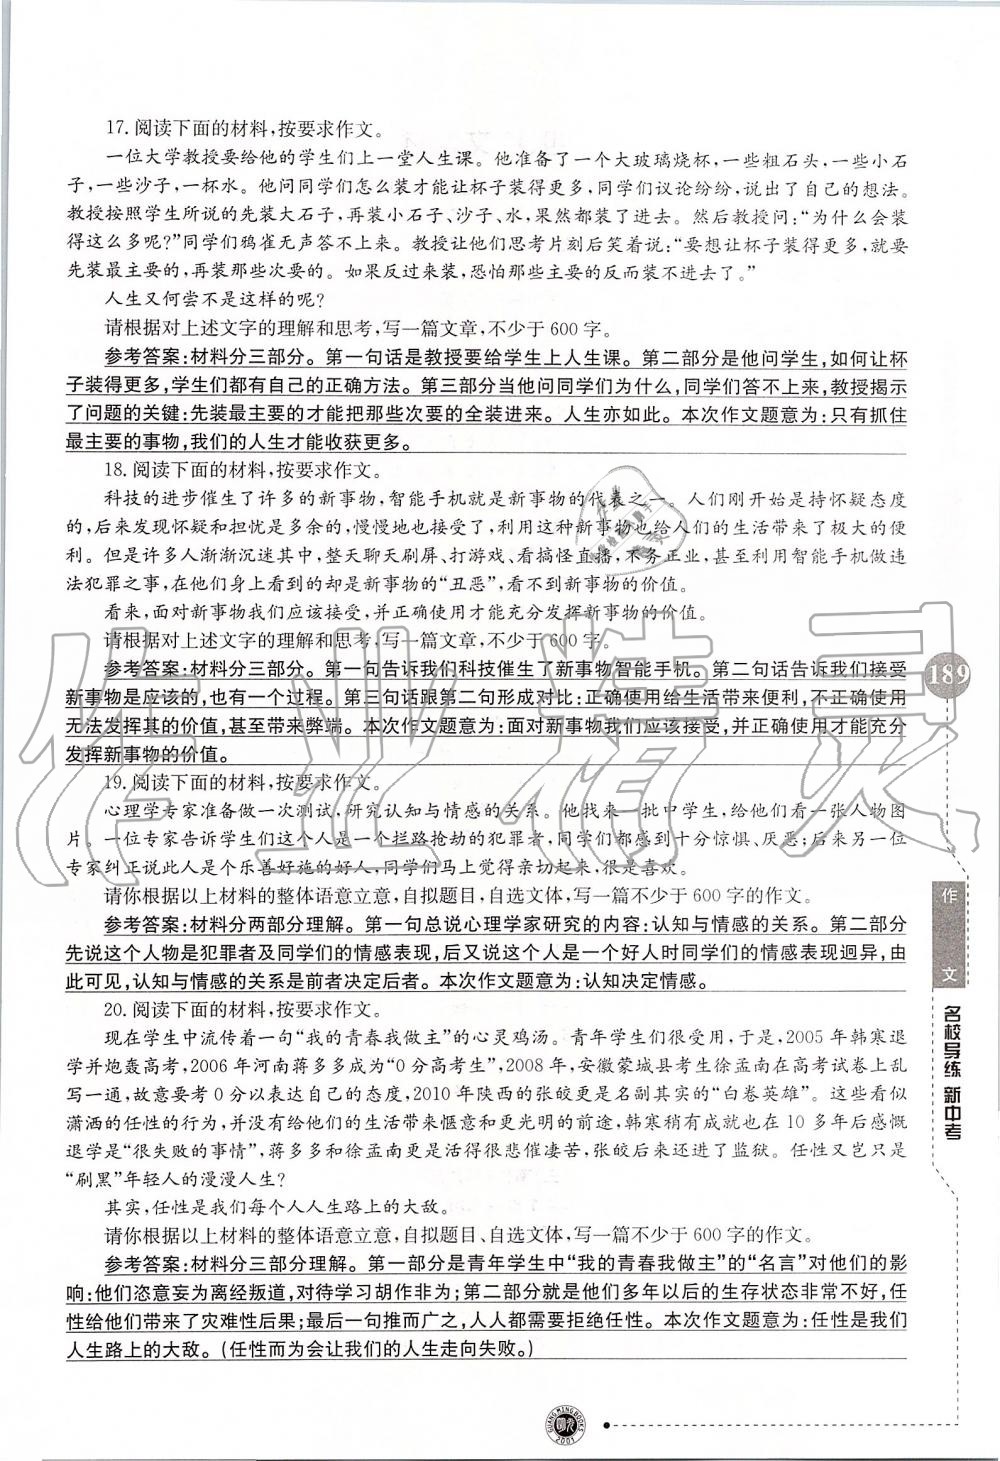 17. 阅读下面的材料,按要求作文。
一位大学教授要给他的学生们上一堂人生课。他准备了一个大玻璃烧杯,一些粗石头,一些小石
子,一些沙子,一杯水。他问同学们怎么装才能让杯子装得更多,同学们议论纷纷,说出了自己的想法。
教授按照学生所说的先装大石子,再装小石子、沙子、水,果然都装了进去。然后教授问:“为什么会装
得这么多呢?”同学们鸦雀无声答不上来。教授让他们思考片刻后笑着说:“要想让杯子装得更多,就要
先装最主要的,再装那些次要的。如果反过来装,恐怕那些主要的反而装不进去了。”
人生又何尝不是这样的呢?
请根据对上述文字的理解和思考,写一篇文章,不少于600字。
参考答案:材料分三部分。第一句话是教授要给学生上人生课。第二部分是他问学生,如何让杯
子装得更多,学生们都有自己的正确方法。第三部分当他问同学们为什么,同学们答不上来,教授揭示
了问题的关键:先装最主要的才能把那些次要的全装进来。人生亦如此。本次作文题意为:只有抓住
最主要的事物,我们的人生才能收获更多。
18. 阅读下面的材料,按要求作文。
科技的进步催生了许多的新事物,智能手机就是新事物的代表之一。人们刚开始是持怀疑态度
的,后来发现怀疑和担忧是多余的,慢慢地也接受了,利用这种新事物也给人们的生活带来了极大的便
利。但是许多人渐渐沉迷其中,整天聊天刷屏、打游戏、看搞怪直播,不务正业,甚至利用智能手机做违
法犯罪之事,在他们身上看到的却是新事物的“丑恶”,看不到新事物的价值。
看来,面对新事物我们应该接受,并正确使用才能充分发挥新事物的价值。
请根据对上述文字的理解和思考,写一篇文章,不少于600字。
参考答案:材料分三部分。第一句告诉我们科技催生了新事物智能手机。第二句话告诉我们接受
新事物是应该的,也有一个过程。第三句话跟第二句形成对比:正确使用给生活带来便利,不正确使用
无法发挥其的价值,甚至带来弊端。本次作文题意为:面对新事物我们应该接受,并正确使用才能充分
发挥新事物的价值。
19. 阅读下面的材料,按要求作文。
心理学专家准备做一次测试,研究认知与情感的关系。他找来一批中学生,给他们看一张人物图
片。一位专家告诉学生们这个人是一个拦路抢劫的犯罪者,同学们都感到十分惊惧、厌恶;后来另一位
专家纠正说此人是个乐善好施的好人,同学们马上觉得亲切起来,很是喜欢。
请你根据以上材料的整体语意立意,自拟题目,自选文体,写一篇不少于600字的作文。
参考答案:材料分两部分理解。第一句总说心理学家研究的内容:认知与情感的关系。第二部分
先说这个人物是犯罪者及同学们的情感表现,后又说这个人是一个好人时同学们的情感表现迥异,由
此可见,认知与情感的关系是前者决定后者。本次作文题意为:认知决定情感。
20. 阅读下面的材料,按要求作文。
现在学生中流传着一句“我的青春我做主”的心灵鸡汤。青年学生们很受用,于是,2005年韩寒退
学并炮轰高考,2006年河南蒋多多成为“0分高考生”,2008年,安徽蒙城县考生徐孟南在高考试卷上乱
写一通,故意要考0分以表达自己的态度,2010年陕西的张皎更是名副其实的“白卷英雄”。这些看似
潇洒的任性的行为,并没有给他们的生活带来惬意和更光明的前途,韩寒稍有成就也在10多年后感慨
退学是“很失败的事情”,蒋多多和徐孟南更是活得很悲催凄苦,张皎后来还进了监狱。任性又岂只是
“刷黑”年轻人的漫漫人生?
其实,任性是我们每个人人生路上的大敌。
请你根据以上材料的整体语意立意,自拟题目、自选文体,写一篇不少于600字的作文。
参考答案:材料分三部分理解。第一部分是青年学生中“我的青春我做主”的“名言”对他们的影
响:他们恣意妄为离经叛道,对待学习胡作非为;第二部分就是他们多年以后的生存状态非常不好,任
性给他们带来了灾难性后果;最后一句推而广之,人人都需要拒绝任性。本次作文题意为:任性是我们
人生路上的大敌。(任性而为会让我们的人生走向失败。)
189
作文
名校导练 新中考
GUANG MING BOOKS
2001
作业精灵